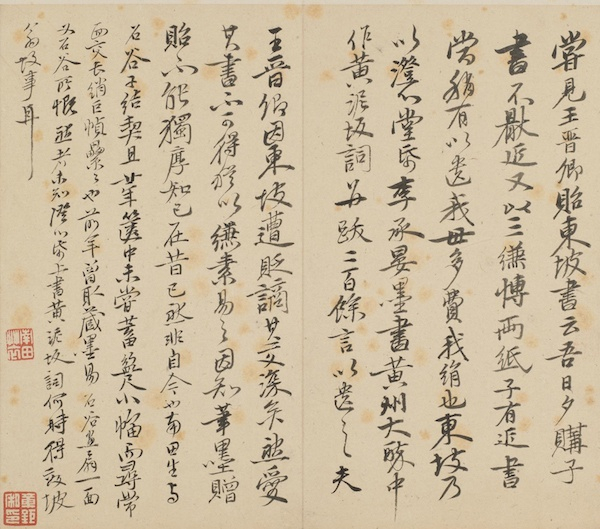 嘗見王晉卿貽東坡書云吾日夕購子
書不厭近又以三縑博兩紙子有近書
當稍有以遺我毋多費我絹也東坡乃
以澄心堂紙李承晏墨書黃州大醉中
作黃泥坂詞并跋二百餘言以遺之夫
王晉卿因東坡遭貶謫其交深矣然愛
其書不可得猶以縑素易之因知筆墨贈
貽不能獨厚知己在昔已然非自今也南田生與
石谷子結契且廿年篋中未嘗蓄盈尺小幅而尋常
面交長綃巨幀纍纍也前年曾取藏墨易石谷畫扇一面
石谷所恨
未知澄心紙上書黃泥坂詞何時得報坡
翁故事耳
南田